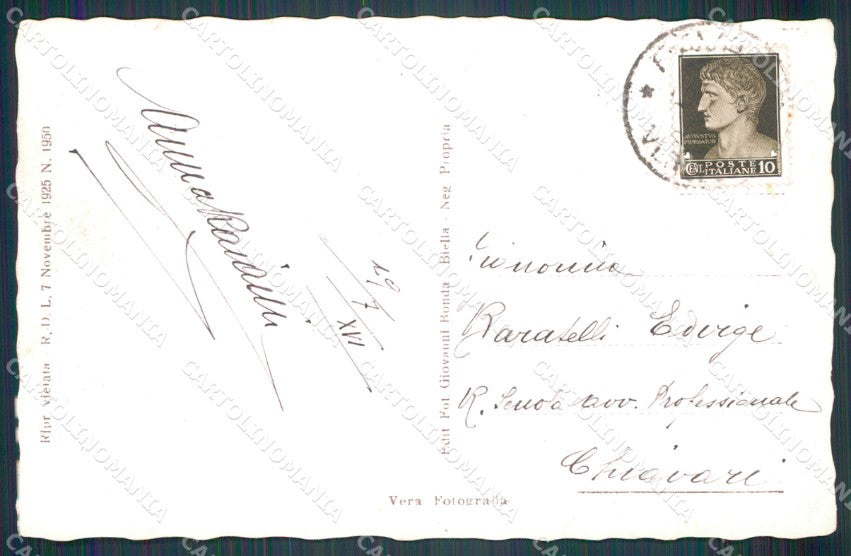 Ripr vietata R. D. L. 7 Novembre 1925 N. 1950
Anna
19/7
XVI
Edit Fot Giovanni Bonda Biella - Neg Propria
Vera Fotografia
AVGVSTVS
CENT. POSTE ITALIANE 10
Signorina
Karatelli Edvige
R. Scuola avv. Professionale
Chiavari
CARTOLINOMANIA